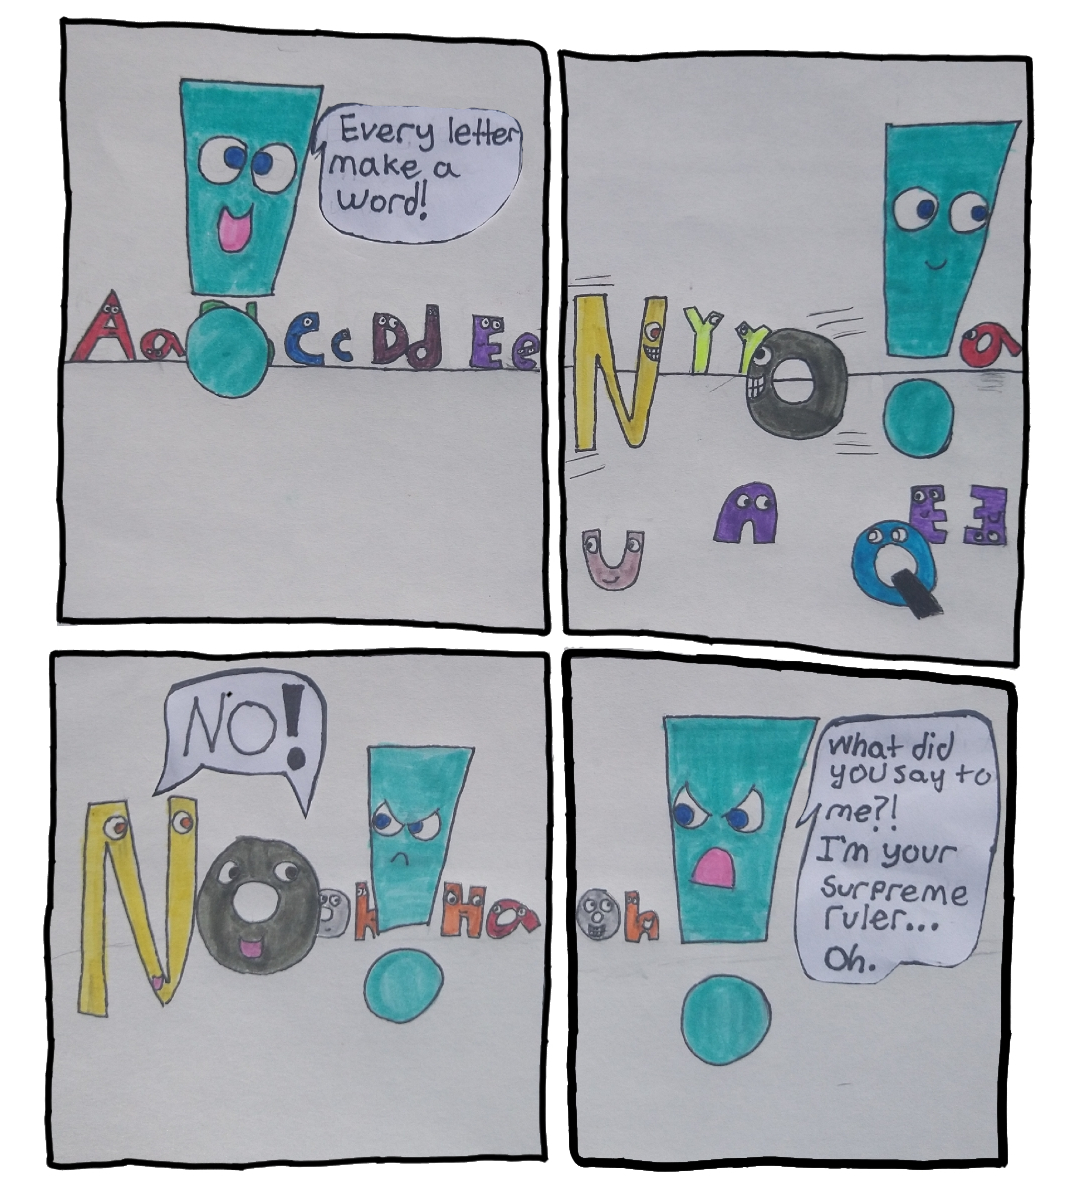 Every letter
make a
word!
Aa Cc Dd Ee
N Y Y O ! a
U A Q E E
NO!
N O o h ! H a
o h !
What did
you say to
me?!
I'm your
surpreme
ruler...
Oh.